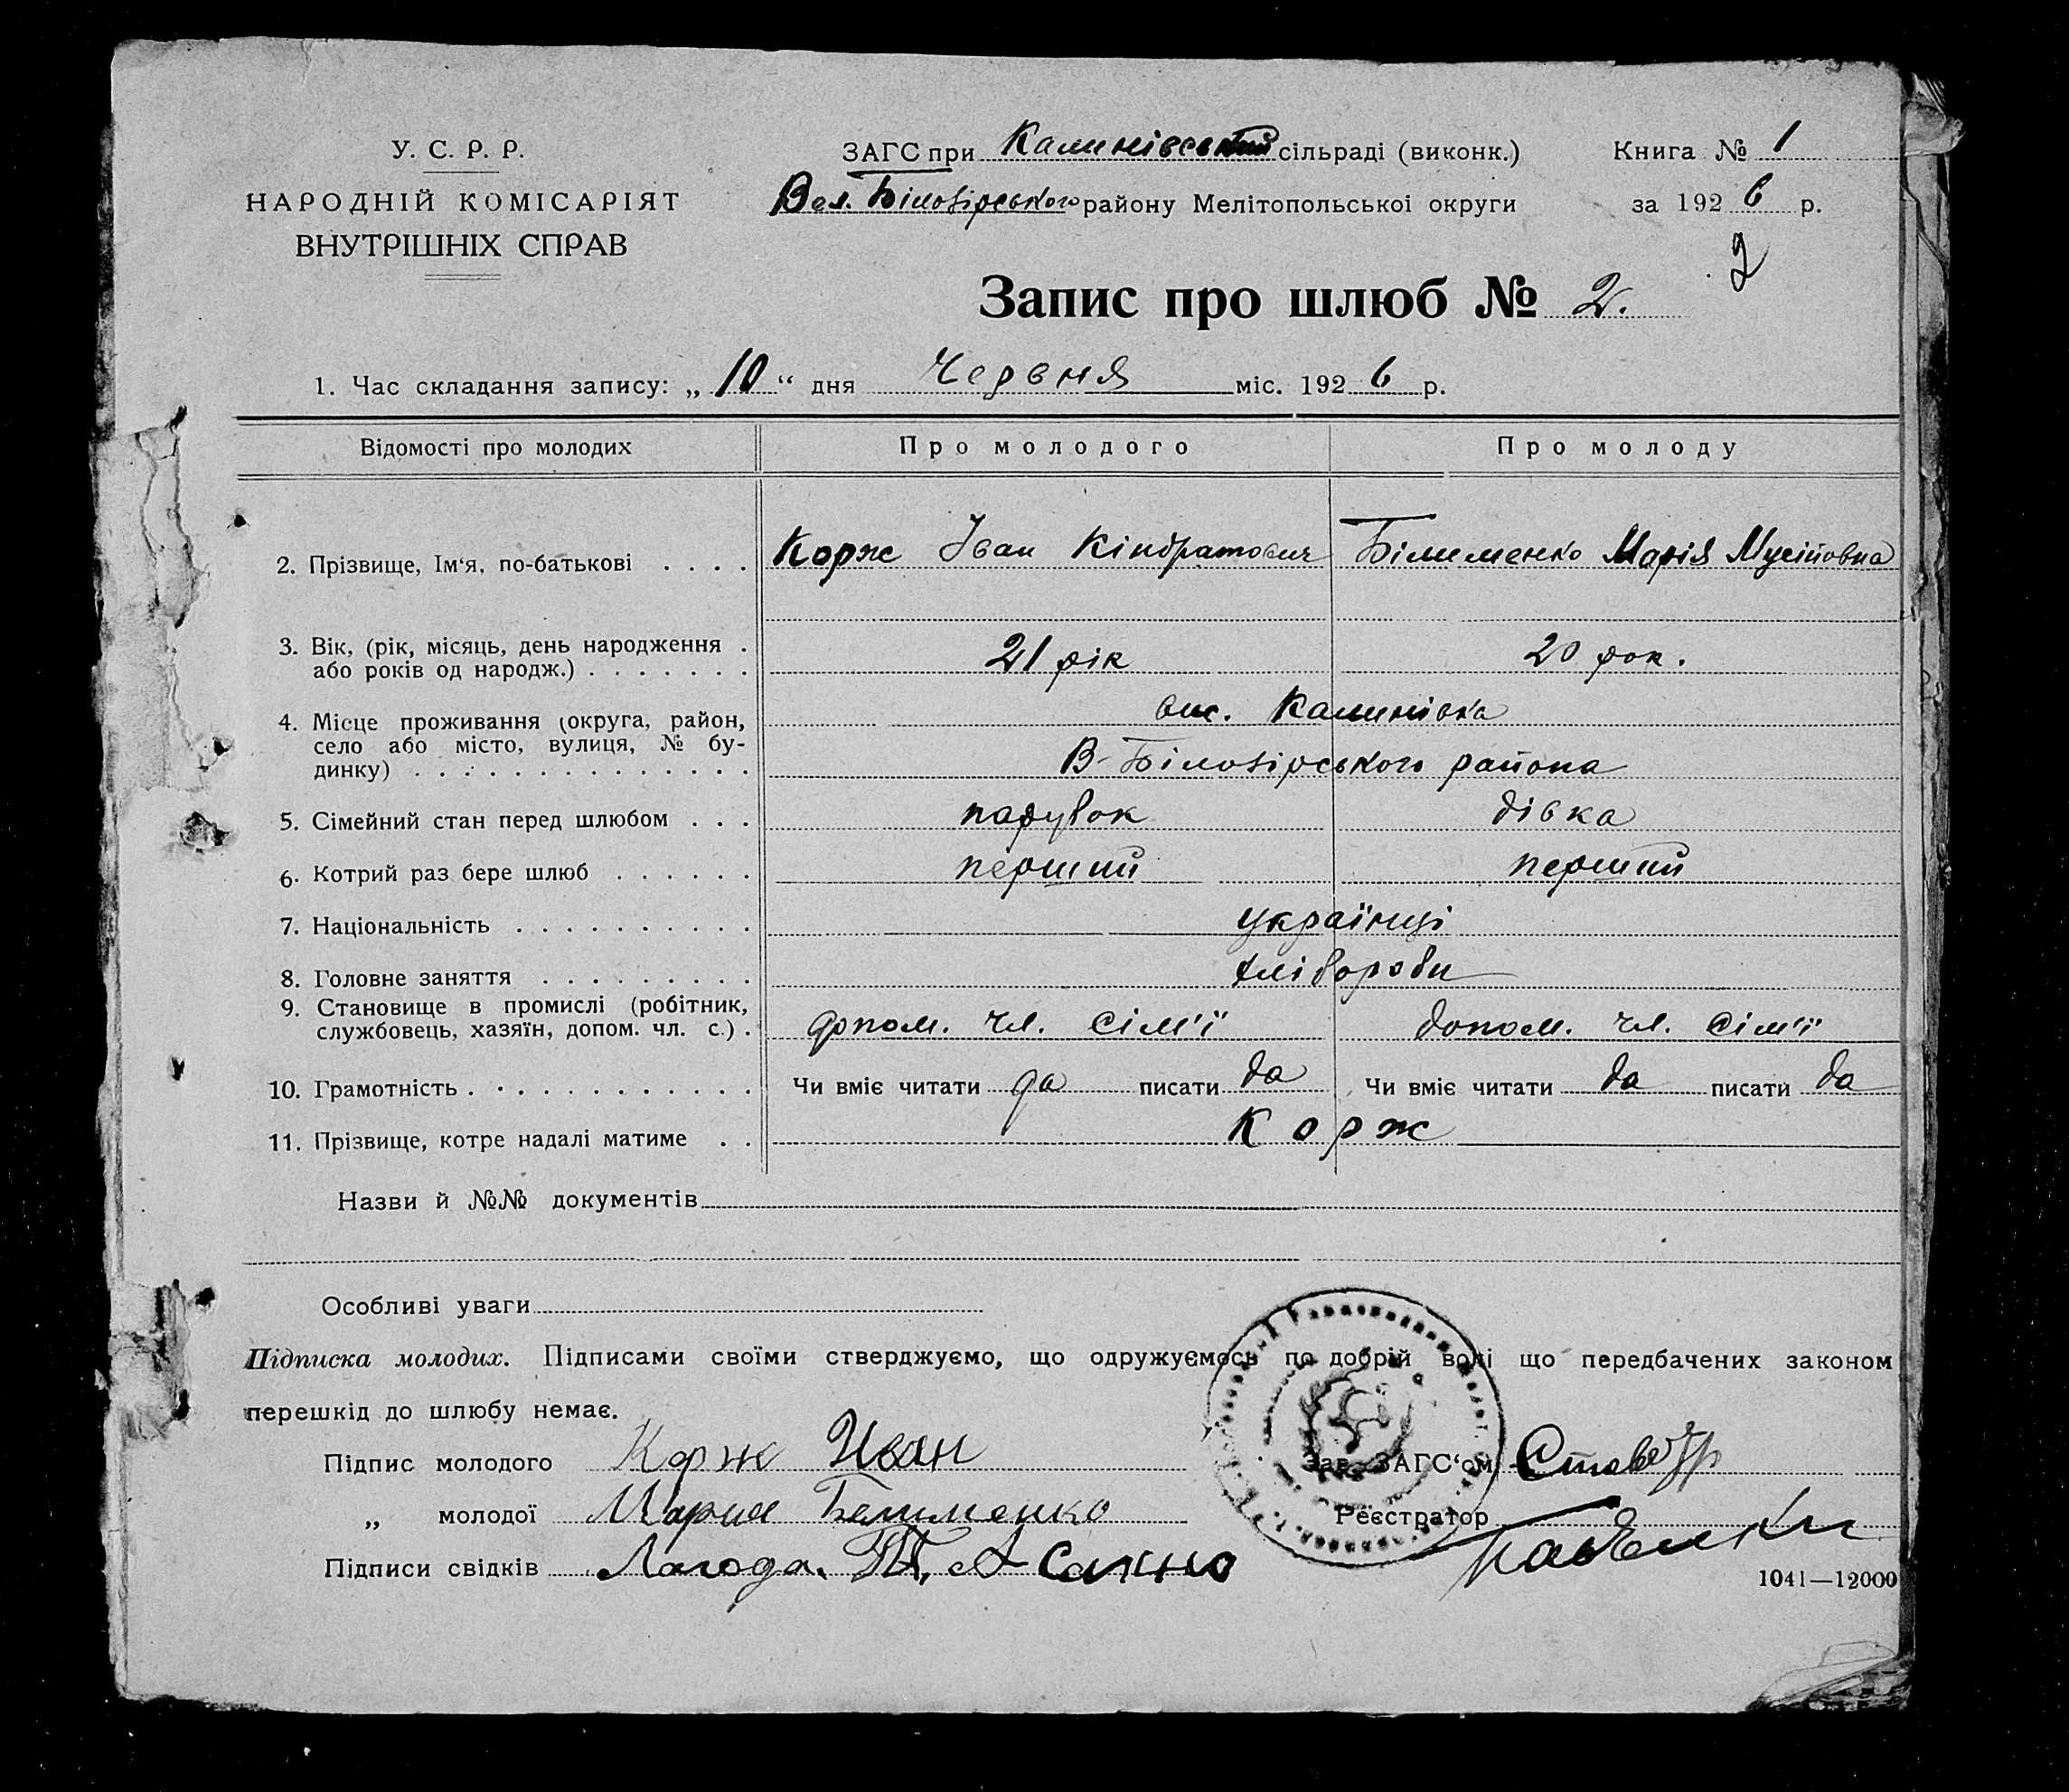 У. С. Р. Р.
НАРОДНІЙ КОМІСАРІЯТ
ВНУТРІШНІХ СПРАВ
ЗАГС при Калинівській сільраді (виконк.)
Вел. Білозірського району Мелітопольської округи
Книга № 1
за 1926 р.
2
Запис про шлюб № 2.
1. Час складання запису: „10“ дня Червня міс. 1926 р.
Відомості про молодих Про молодого Про молоду
2. Прізвище, Ім‘я, по-батькові . . . . Корж Іван Кіндратович Білименко Марія Мусіївна
3. Вік, (рік, місяць, день народження .
або років од народж.) . . . . . . . 21 рік 20 рок.
4. Місце проживання (округа, район, вис. Калинівка
село або місто, вулиця, № бу-
динку) . . . . . . . . . . . . . . В-Білозірського района
5. Сімейний стан перед шлюбом . . . парубок дівка
6. Котрий раз бере шлюб . . . . . . перший перший
7. Національність . . . . . . . . . . українці
8. Головне заняття . . . . . . . . . хлібороби
9. Становище в промислі (робітник,
службовець, хазяїн, допом. чл. с.) . допом. чл. сім'ї допом. чл. сім'ї
10. Грамотність . . . . . . . . . . . . Чи вміє читати да писати да Чи вміє читати да писати да
11. Прізвище, котре надалі матиме . . Корж
Назви й №№ документів
Особливі уваги
Підписка молодих. Підписами своїми стверджуємо, що одружуємось по добрій волі що передбачених законом
перешкід до шлюбу немає.
Підпис молодого Корж Иван
Зав. ЗАГС‘ом
„ молодої Мария Белименко
Реєстратор
Підписи свідків Лагода.
1041—12000